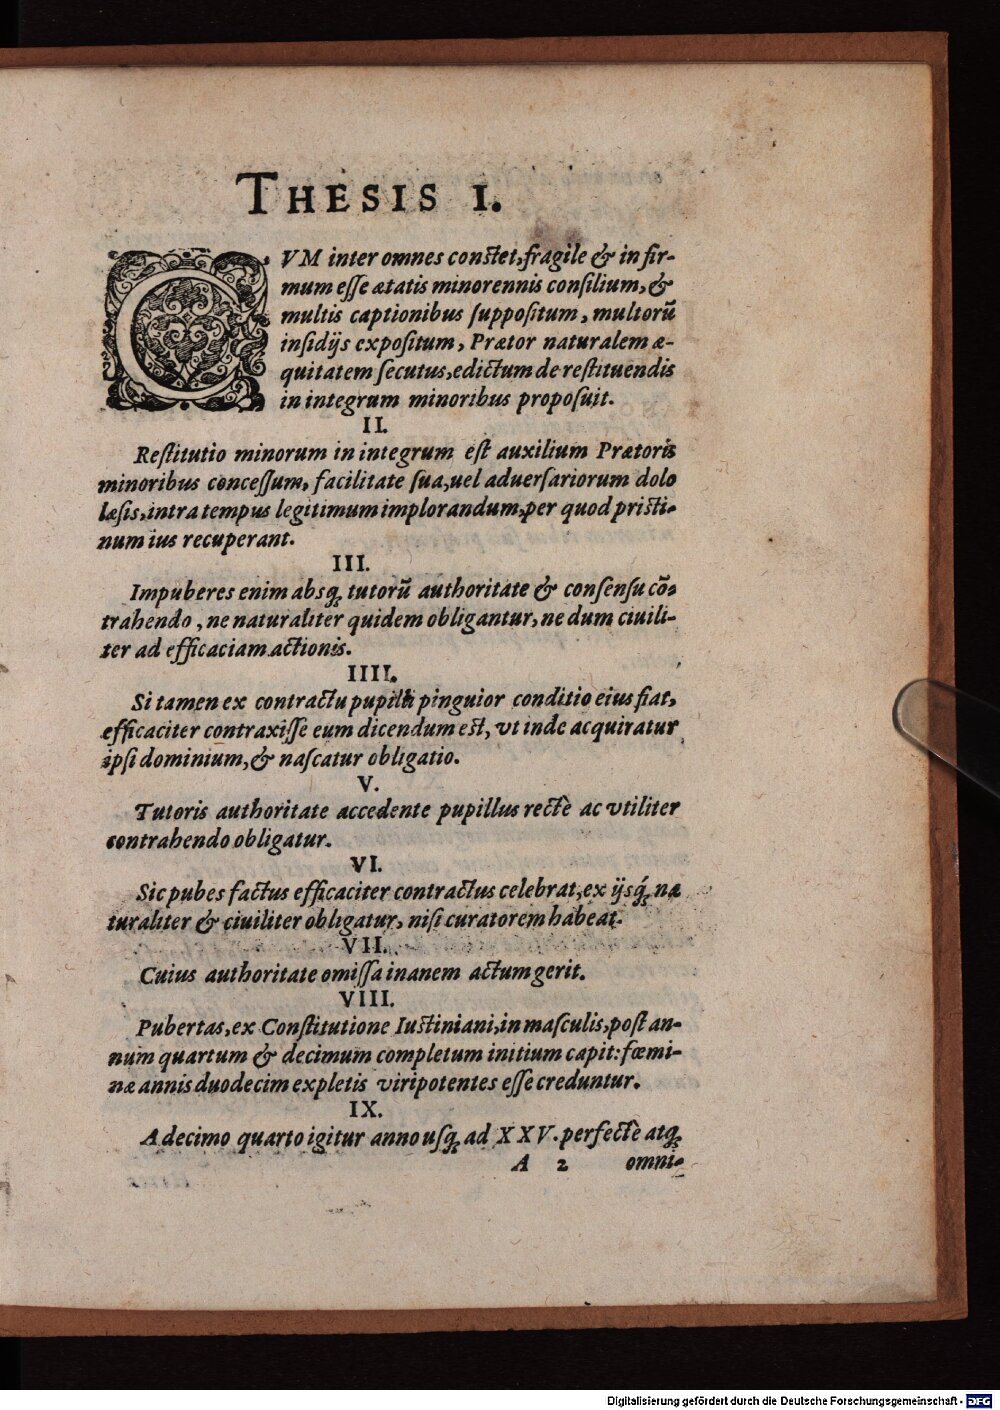 THESIS I.
CVM inter omnes conſtet, fragile & infir-
mum eſſe ætatis minorennis conſilium, &
multis captionibus ſuppoſitum, multorũ
inſidijs expoſitum, Prætor naturalem æ-
quitatem ſecutus, edictum de reſtituendis
in integrum minoribus propoſuit.
II.
Reſtitutio minorum in integrum eſt auxilium Prætoris
minoribus conceſſum, facilitate ſua, uel aduerſariorum dolo
læſis, intra tempus legitimum implorandum, per quod priſti-
num ius recuperant.
III.
Impuberes enim absq; tutorũ authoritate & conſenſu cõ-
trahendo, ne naturaliter quidem obligantur, ne dum ciuili-
ter ad efficaciam actionis.
IIII.
Si tamen ex contractu pupilli pinguior conditio eius fiat,
efficaciter contraxiſſe eum dicendum eſt, vt inde acquiratur
ipſi dominium, & naſcatur obligatio.
V.
Tutoris authoritate accedente pupillus rectè ac vtiliter
contrahendo obligatur.
VI.
Sic pubes factus efficaciter contractus celebrat, ex ijsq́; na
turaliter & ciuiliter obligatur, niſi curatorem habeat.
VII.
Cuius authoritate omiſſa inanem actum gerit.
VIII.
Pubertas, ex Conſtitutione Iuſtiniani, in maſculis, poſt an-
num quartum & decimum completum initium capit: fœmi-
næ annis duodecim expletis viripotentes eſſe creduntur.
IX.
A decimo quarto igitur anno uſq; ad XXV. perfectè atq;
A 2 omni-
Digitalisierung gefördert durch die Deutsche Forschungsgemeinschaft - DFG